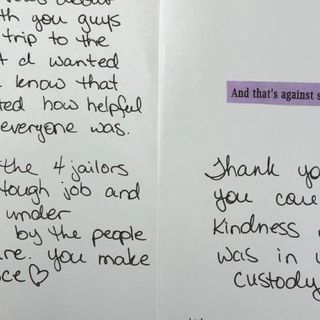 th you guys
trip to the
I wanted
know that
ted how helpful
everyone was.
the 4 jailors
tough job and
under
by the people
are. you make
ce♡
And that's against s
Thank yo
you
Kindness
was in
custody